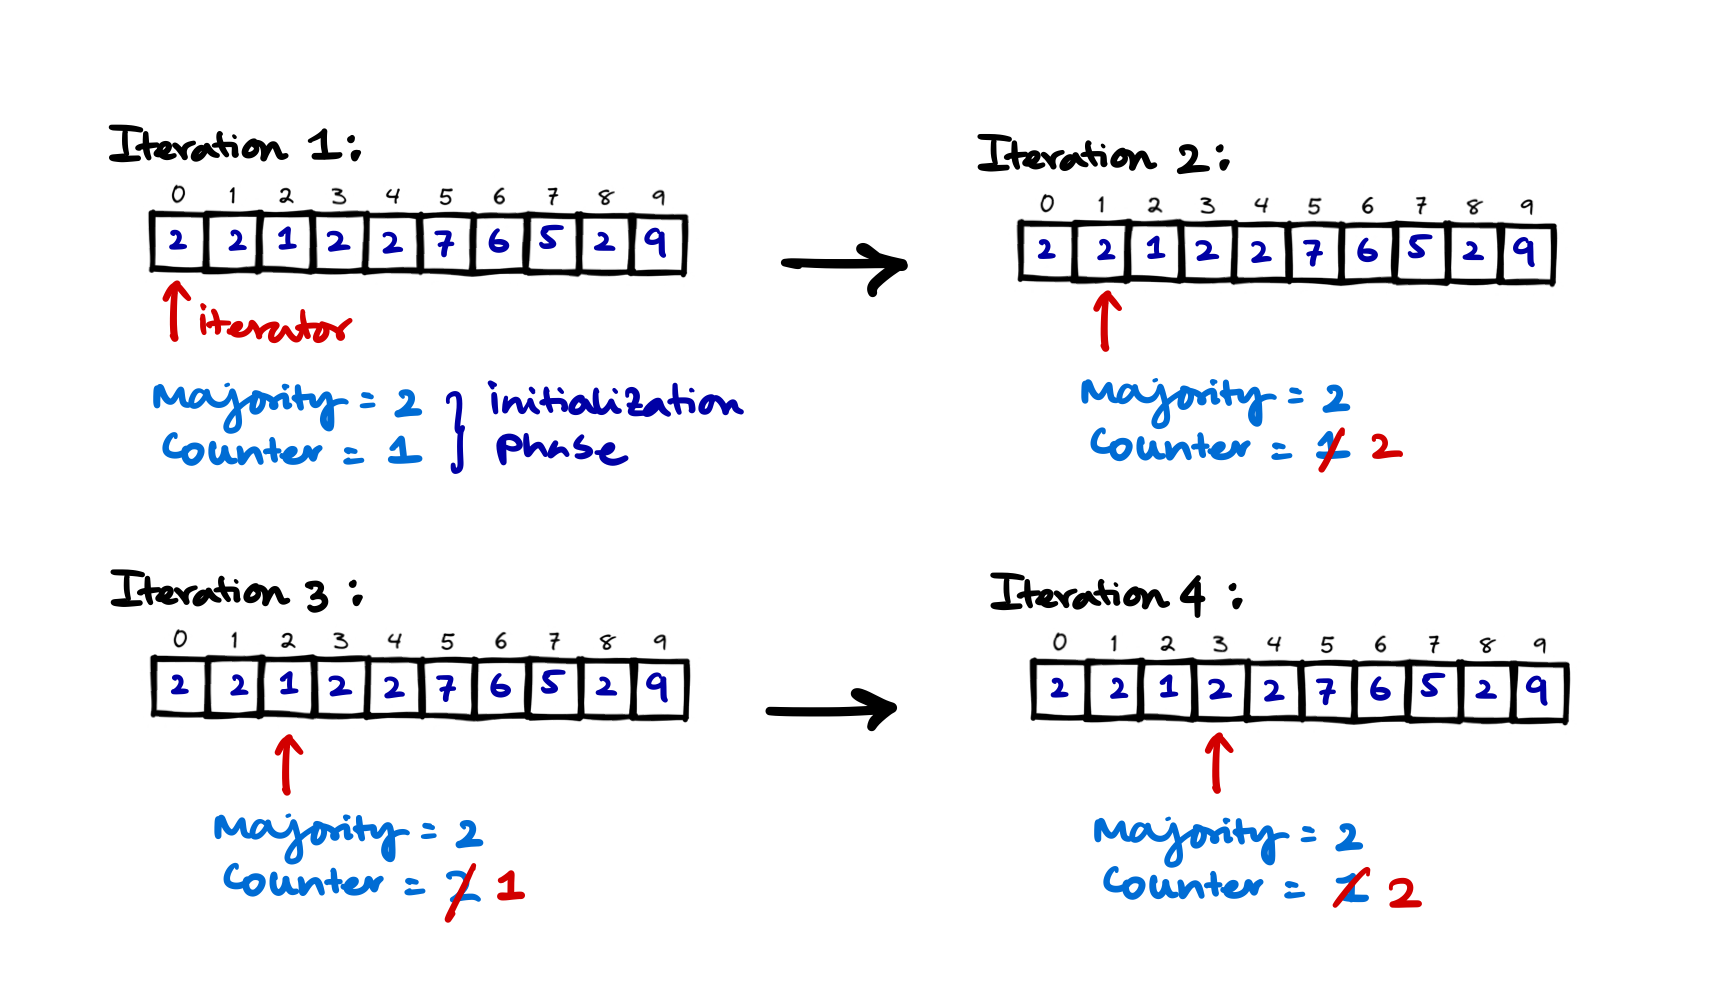 Iteration 1:
0 1 2 3 4 5 6 7 8 9
2 2 1 2 2 7 6 5 2 9
iterator
Majority = 2
Counter = 1
initialization
phase
Iteration 2:
0 1 2 3 4 5 6 7 8 9
2 2 1 2 2 7 6 5 2 9
Majority = 2
Counter = 1 2
Iteration 3:
0 1 2 3 4 5 6 7 8 9
2 2 1 2 2 7 6 5 2 9
Majority = 2
Counter = 2 1
Iteration 4:
0 1 2 3 4 5 6 7 8 9
2 2 1 2 2 7 6 5 2 9
Majority = 2
Counter = 1 2